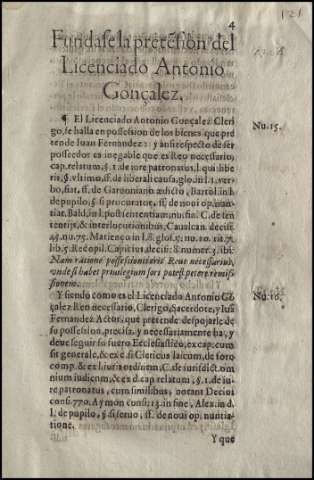 4
121
Fundase la pretẽsion del
Licenciado Antonio
Gonçalez.
¶ El Licenciado Antonio Gonçalez Cleri
go, se halla en possession de los bienes que pre
tende Iuan Fernandez: y assi respecto de ser
possedor es inegable que es Reo necessario,
cap. relatum, §. 1. de iure patronatus, l. qui libe
ris, §. vltimo, ff. de liberali causa, glo. in l. 1. ver-
bo, fiat, ff. de Carboniano ædicto, Bartol. in l.
de pupilo, §. si procurator, ff. de noui op. nun-
tiat. Bald. in l. post sententiam, nu. fin. C. de sen
tentijs, & interlocutionibus, Caualcan. decis.
45. nu. 75. Matienço in l. 8. glos. 5. nu. 10. tit. 7.
lib. 5. Recopil. Capicius, decis. 8. numer. 3. ibi:
Nam ratione possessionis erit Reus necessarius,
vnde si habet priuilegium fori potest petere remis-
sionem.
Nu. 15.
Y siendo como es el Licenciado Antonio Gõ
çalez Reo necessario, Clerigo, Sacerdote, y Iuã
Fernandez Actor, que pretende despojarle de
su possession, precisa, y necessariamente ha, y
deue seguir su fuero Ecclesiastico, ex cap. cum
sit generale, & ex c. si Clericus laicum, de foro
comp. & ex l. iuris ordinem, C. de iurisdict. om
nium iudicum, & ex d. cap. relatum, §. 1. de iu-
re patronatus, cum similibus, notant Decius
cons. 770. Aymon cons. 13. in fine, Alex. in d.
l. de pupilo, §. si seruo, ff. de noui op. nuntia-
tione.
Nu. 16.
Y que